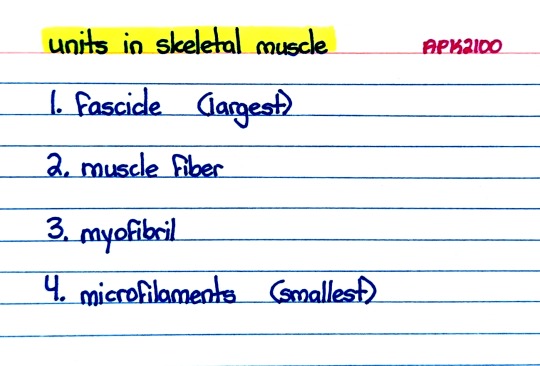 units in skeletal muscle APK2100
1. fascicle (largest)
2. muscle fiber
3. myofibril
4. microfilaments (smallest)